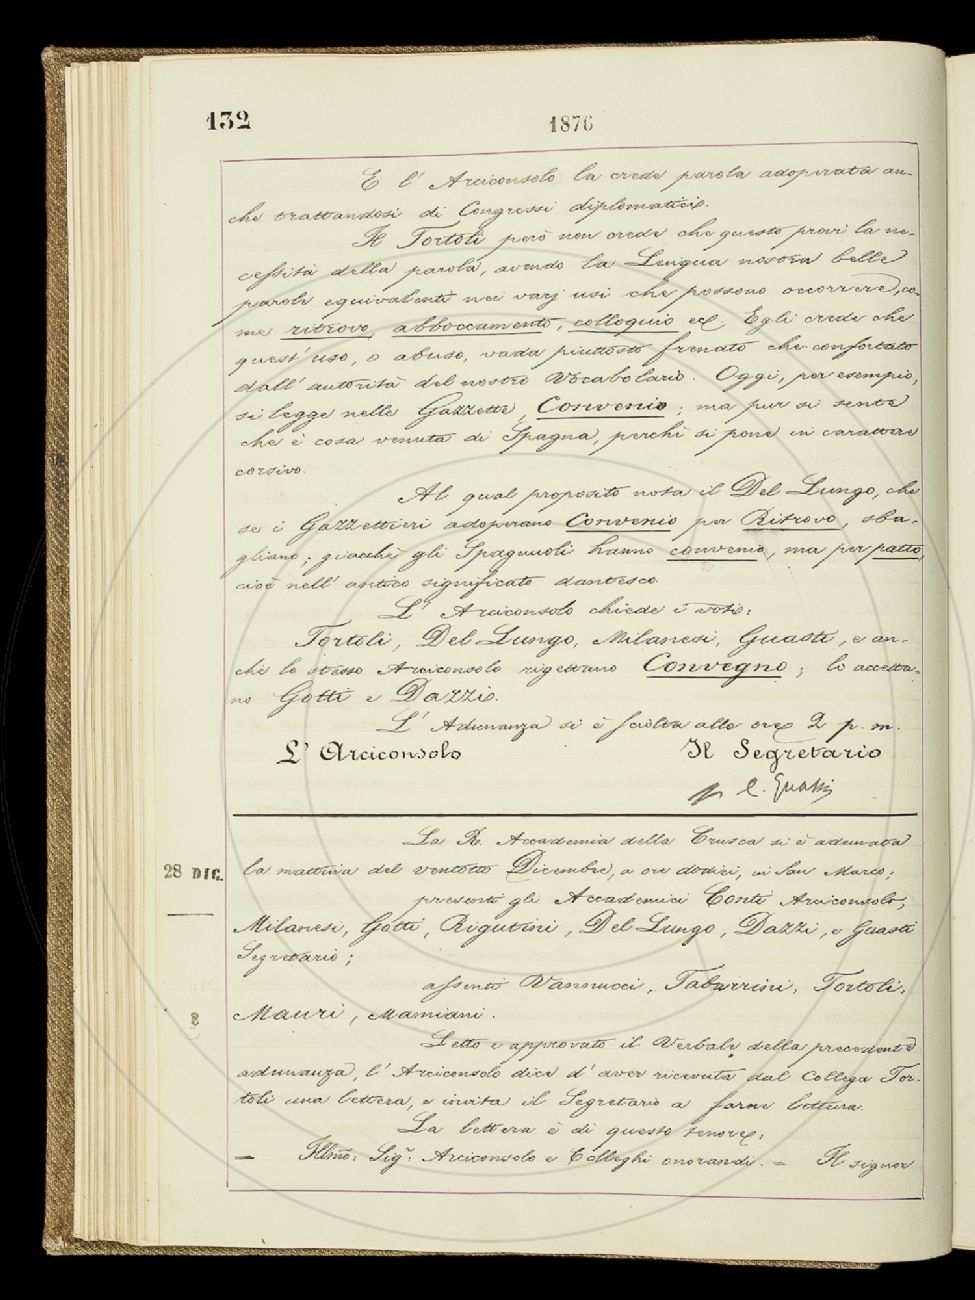 132
1876
E l' Arciconsolo la crede parola adoperata an-
che trattandosi di Congressi diplomatici.
Il Tortoli però non crede che questo provi la ne-
cessità della parola, avendo la Lingua nostra belle
parole equivalenti nei varj usi che possono occorrere, co-
me ritrovo, abboccamento, colloquio ec. Egli crede che
quest' uso, o abuso, vada piuttosto frenato che confortato
dall' autorità del nostro Vocabolario. Oggi, per esempio,
si legge nelle Gazzette, Convenio; ma pur si sente
che è cosa venuta di Spagna, perchè si pone in carattere
corsivo.
Al qual proposito nota il Del Lungo, che
se i Gazzettieri adoperano Convenio per Ritrovo, sba-
gliano; giacchè gli Spagnuoli hanno convenio, ma per patto,
cioè nell' antico significato dantesco.
L' Arciconsolo chiede i voti:
Tortoli, Del Lungo, Milanesi, Guasti, e an-
che lo stesso Arciconsolo rigettano Convegno; lo accetta-
no Gotti e Dazzi.
L' Adunanza si è sciolta alle ore 2 p. m.
L' Arciconsolo
Il Segretario
C. Guasti
28 DIC.
La R. Accademia della Crusca si è adunata
la mattina del ventotto Dicembre, a ore dodici, in San Marco;
presenti gli Accademici Conti Arciconsolo,
Milanesi, Gotti, Rigutini, Del Lungo, Dazzi, e Guasti
Segretario;
assenti Vannucci, Tabarrini, Tortoli,
Mauri, Mamiani.
Letto e approvato il Verbale della precedente
adunanza, l' Arciconsolo dice d' aver ricevuta dal Collega Tor-
toli una lettera, e invita il Segretario a farne lettura.
La lettera è di questo tenore:
— Illmo: Sigr. Arciconsolo e Colleghi onorandi. = Il signor